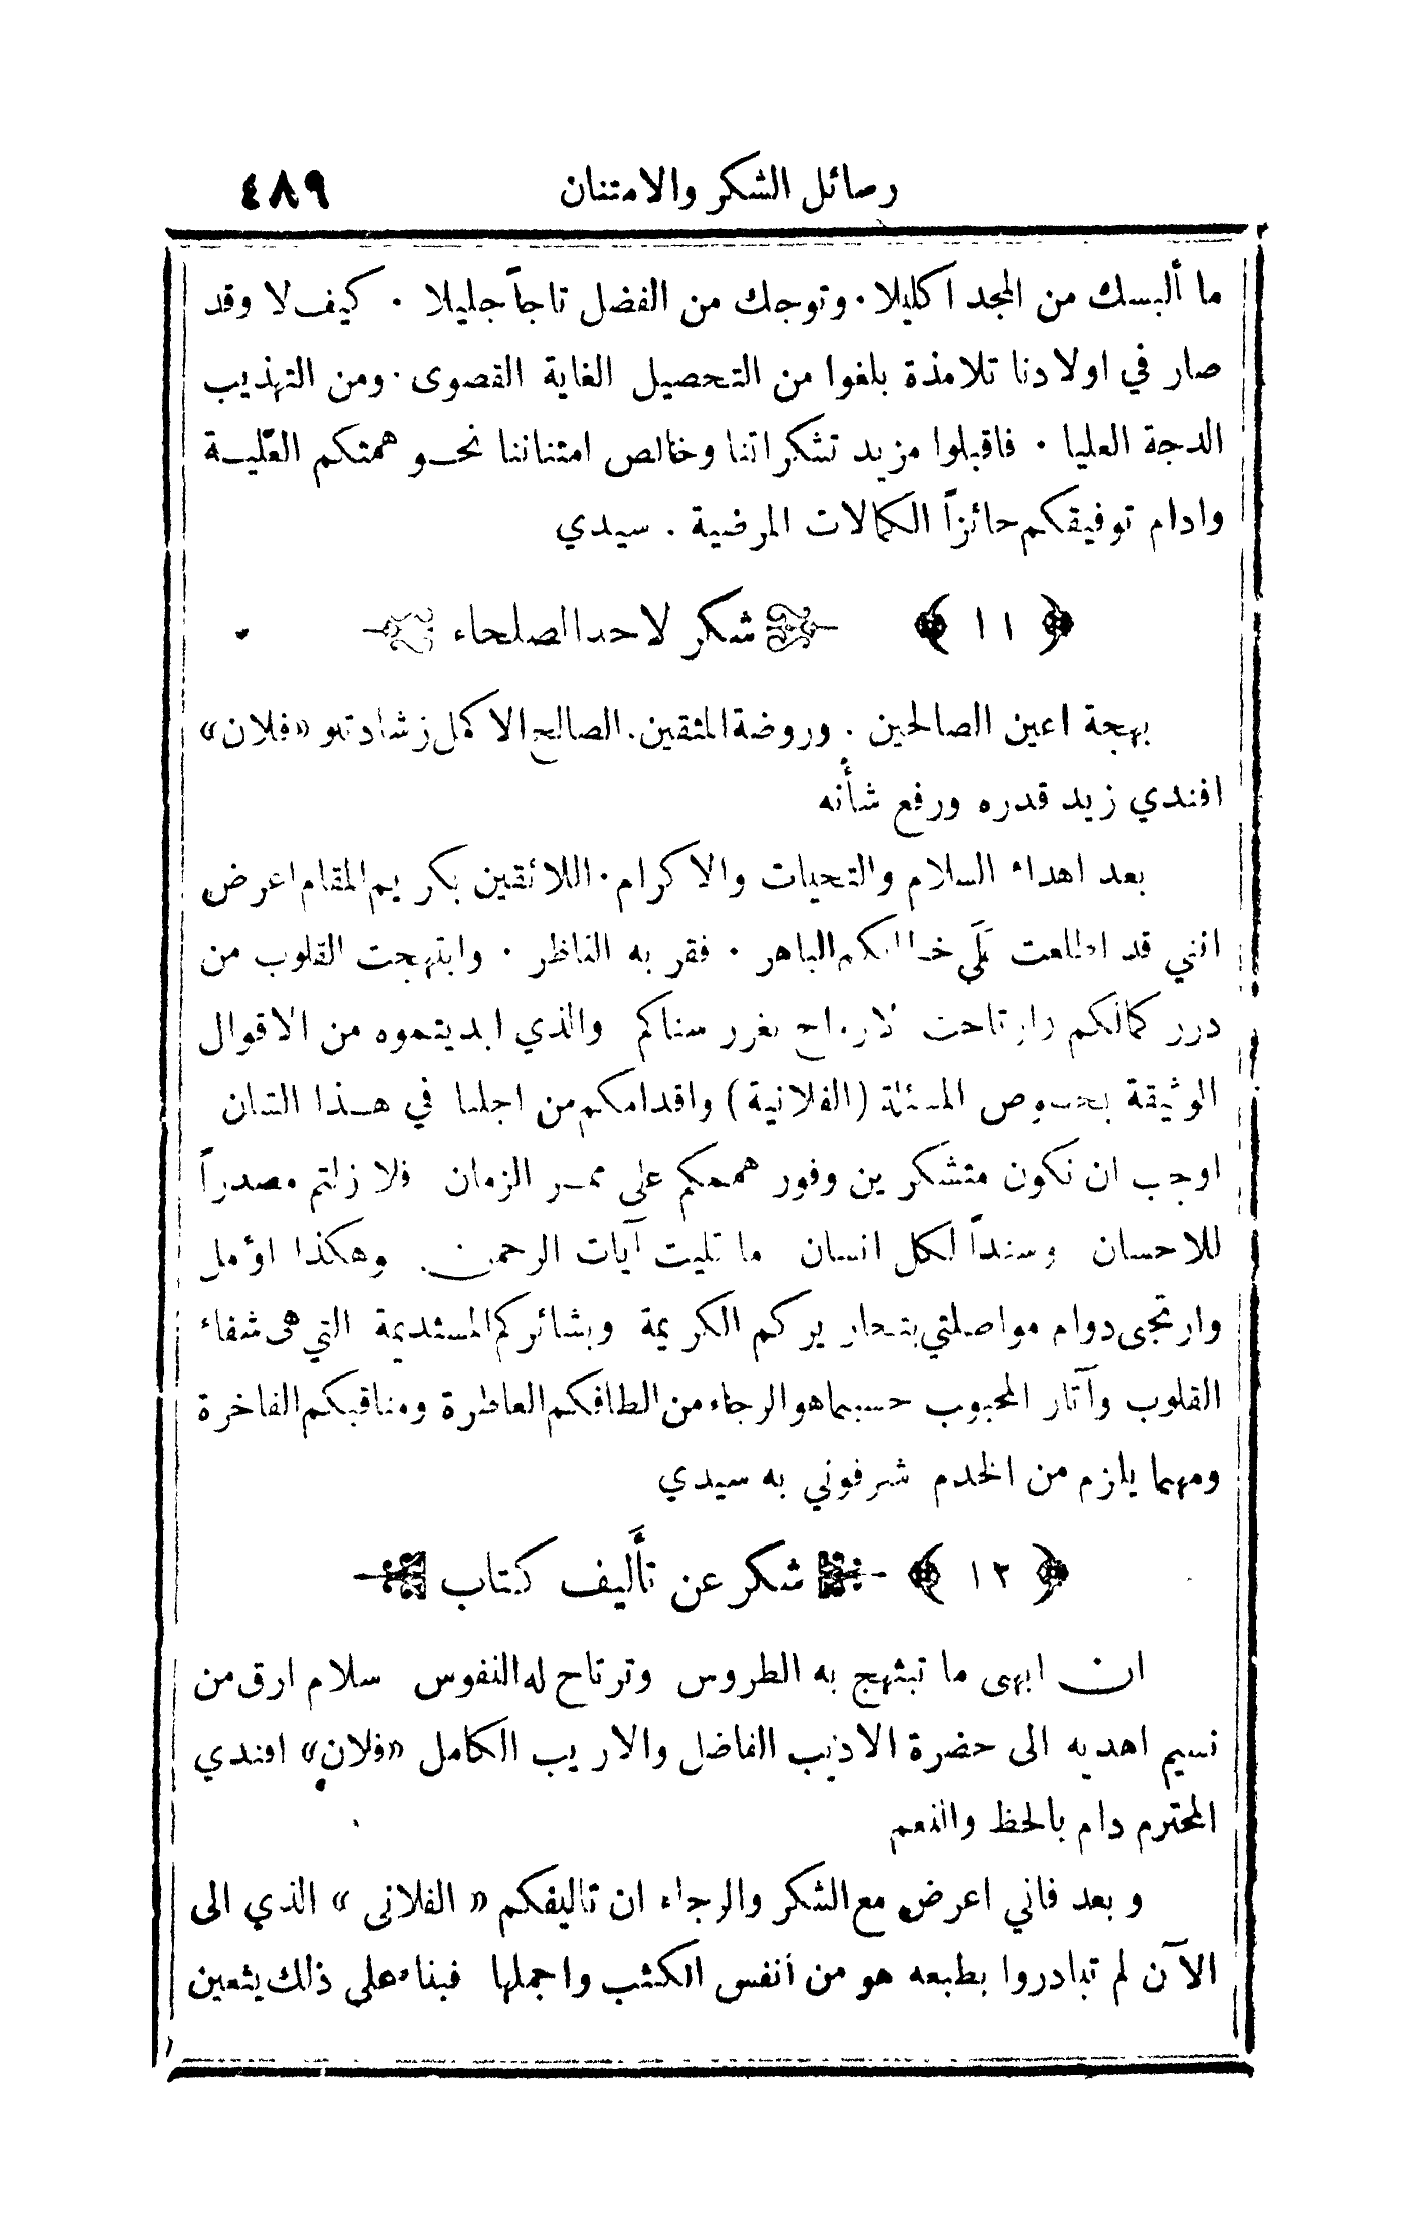 رسائل الشكر والامتنان ٤٨٩
ما ألبسك من المجد اكليلا · وتوجك من الفضل تاجاً جليلا · كيف لا وقد
صار في اولادنا تلامذة بلغوا من التحصيل الغاية القصوى · ومن التهذيب
الدجة العليا · فاقبلوا مزيد تشكراتنا وخالص امتناننا نحو همتكم العلية
وادام توفيقكم حائزاً الكمالات المرضية . سيدي
﴿ ١١ ﴾ شكر لاحد الصلحاء
بهجة اعين الصالحين . وروضة المتقين . الصالح الاكمل رشادتلو «فلان»
افندي زيد قدره ورفع شأنه
بعد اهداء السلام والتحيات والاكرام · اللائقين بكريم المقام اعرض
انني قد اطلعت عَلَى الباهر · فقر به الناظر · وابتهجت القلوب من
درر كمالكم وارتاحت الارواح بغرر سناكم والذي ابديتموه من الاقوال
الوثيقة بخصوص المسئلة (الفلانية) واقدامكم من اجلنا في هذا الشان
اوجب ان نكون متشكرين وفور هممكم على ممر الزمان فلا زلتم مصدراً
للاحسان وسنداً لكل انسان ما تليت آيات الرحمن . وهكذا اؤمل
وارتجى دوام مواصلتي بتحاريركم الكريمة وبشائركم المستديمة التي هى شفاء
القلوب وآثار المحبوب حسبما هو الرجاء من الطافكم العاطرة ومناقبكم الفاخرة
ومهما يلزم من الخدم شرفوني به سيدي
﴿ ١٢ ﴾ شكر عن تأليف كتاب
ان ابهى ما تبتهج به الطروس وترتاح له النفوس سلام ارق من
نسيم اهديه الى حضرة الاديب الفاضل والاريب الكامل «فلان» افندي
المحترم دام بالحظ والنعم
وبعد فاني اعرض مع الشكر والرجاء ان تاليفكم « الفلانى » الذي الى
الآن لم تبادروا بطبعه هو من أنفس الكتب واجملها فبناء على ذلك يتعين